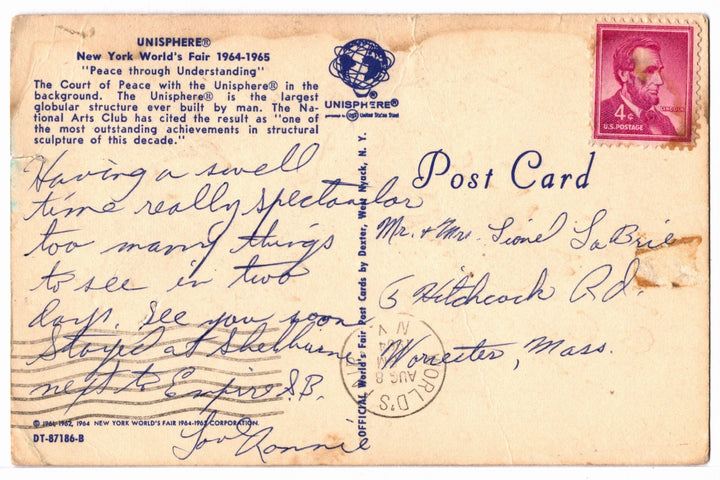 UNISPHERE®
New York World's Fair 1964-1965
"Peace through Understanding"
The Court of Peace with the Unisphere® in the
background. The Unisphere® is the largest
globular structure ever built by man. The Na-
tional Arts Club has cited the result as "one of
the most outstanding achievements in structural
sculpture of this decade."
UNISPHERE®
presented by USS United States Steel
4¢
LINCOLN
U.S. POSTAGE
Post Card
Having a swell
time really spectacular
too many things
to see in two
days. See you soon
Stayed at Shelburne
next to Empire S.B.
Love Ronnie
OFFICIAL World's Fair Post Cards by Dexter, West Nyack, N. Y.
Mr. & Mrs. Lionel LaBrie
5 Hitchcock Rd.
Worcester, Mass.
WORLD'S
AUG 8
N.Y.
© 1961, 1962, 1964 NEW YORK WORLD'S FAIR 1964-1965 CORPORATION.
DT-87186-B